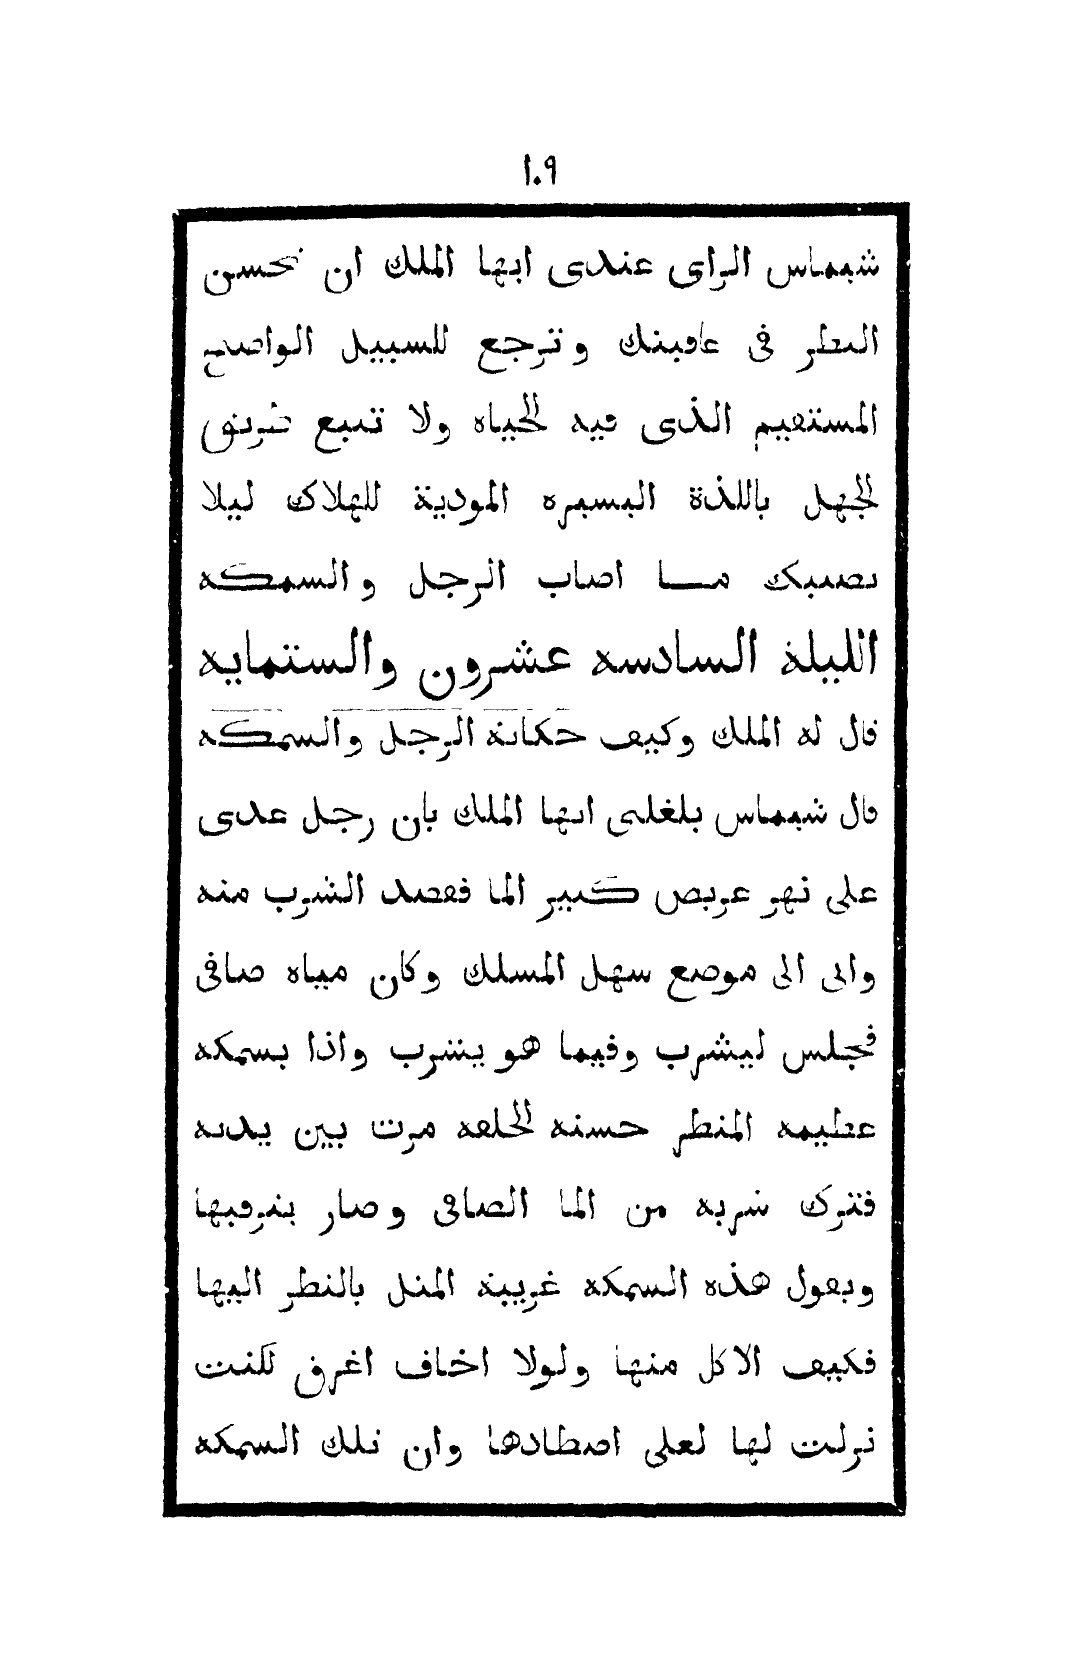 ١٠٩
شيماس الراى عندى ايها الملك ان تحسن
النظر فى عاقبتك وترجع للسبيل الواضح
المستقيم الذى فيه الحياه ولا تتبع طريق
الجهل باللذة اليسيره المودية للهلاك ليلا
يصيبك مـــا اصاب الرجل والسمكه
الليلة السادسه عشرون والستمايه
قال له الملك وكيف حكاية الرجل والسمكه
قال شيماس بلغلى ايها الملك بان رجل عدى
على نهر عريض كبير الما فقصد الشرب منه
واتى الى موضع سهل المسلك وكان مياه صافى
فجلس ليشرب وفيما هو يشرب واذا بسمكه
عظيمه المنظر حسنه الخلقه مرت بين يديه
فترك شربه من الما الصافى وصار يترقبها
ويقول هذه السمكه غريبة المثل بالنظر اليها
فكيف الاكل منها ولولا اخاف اغرق لكنت
نزلت لها لعلى اصطادها وان تلك السمكه